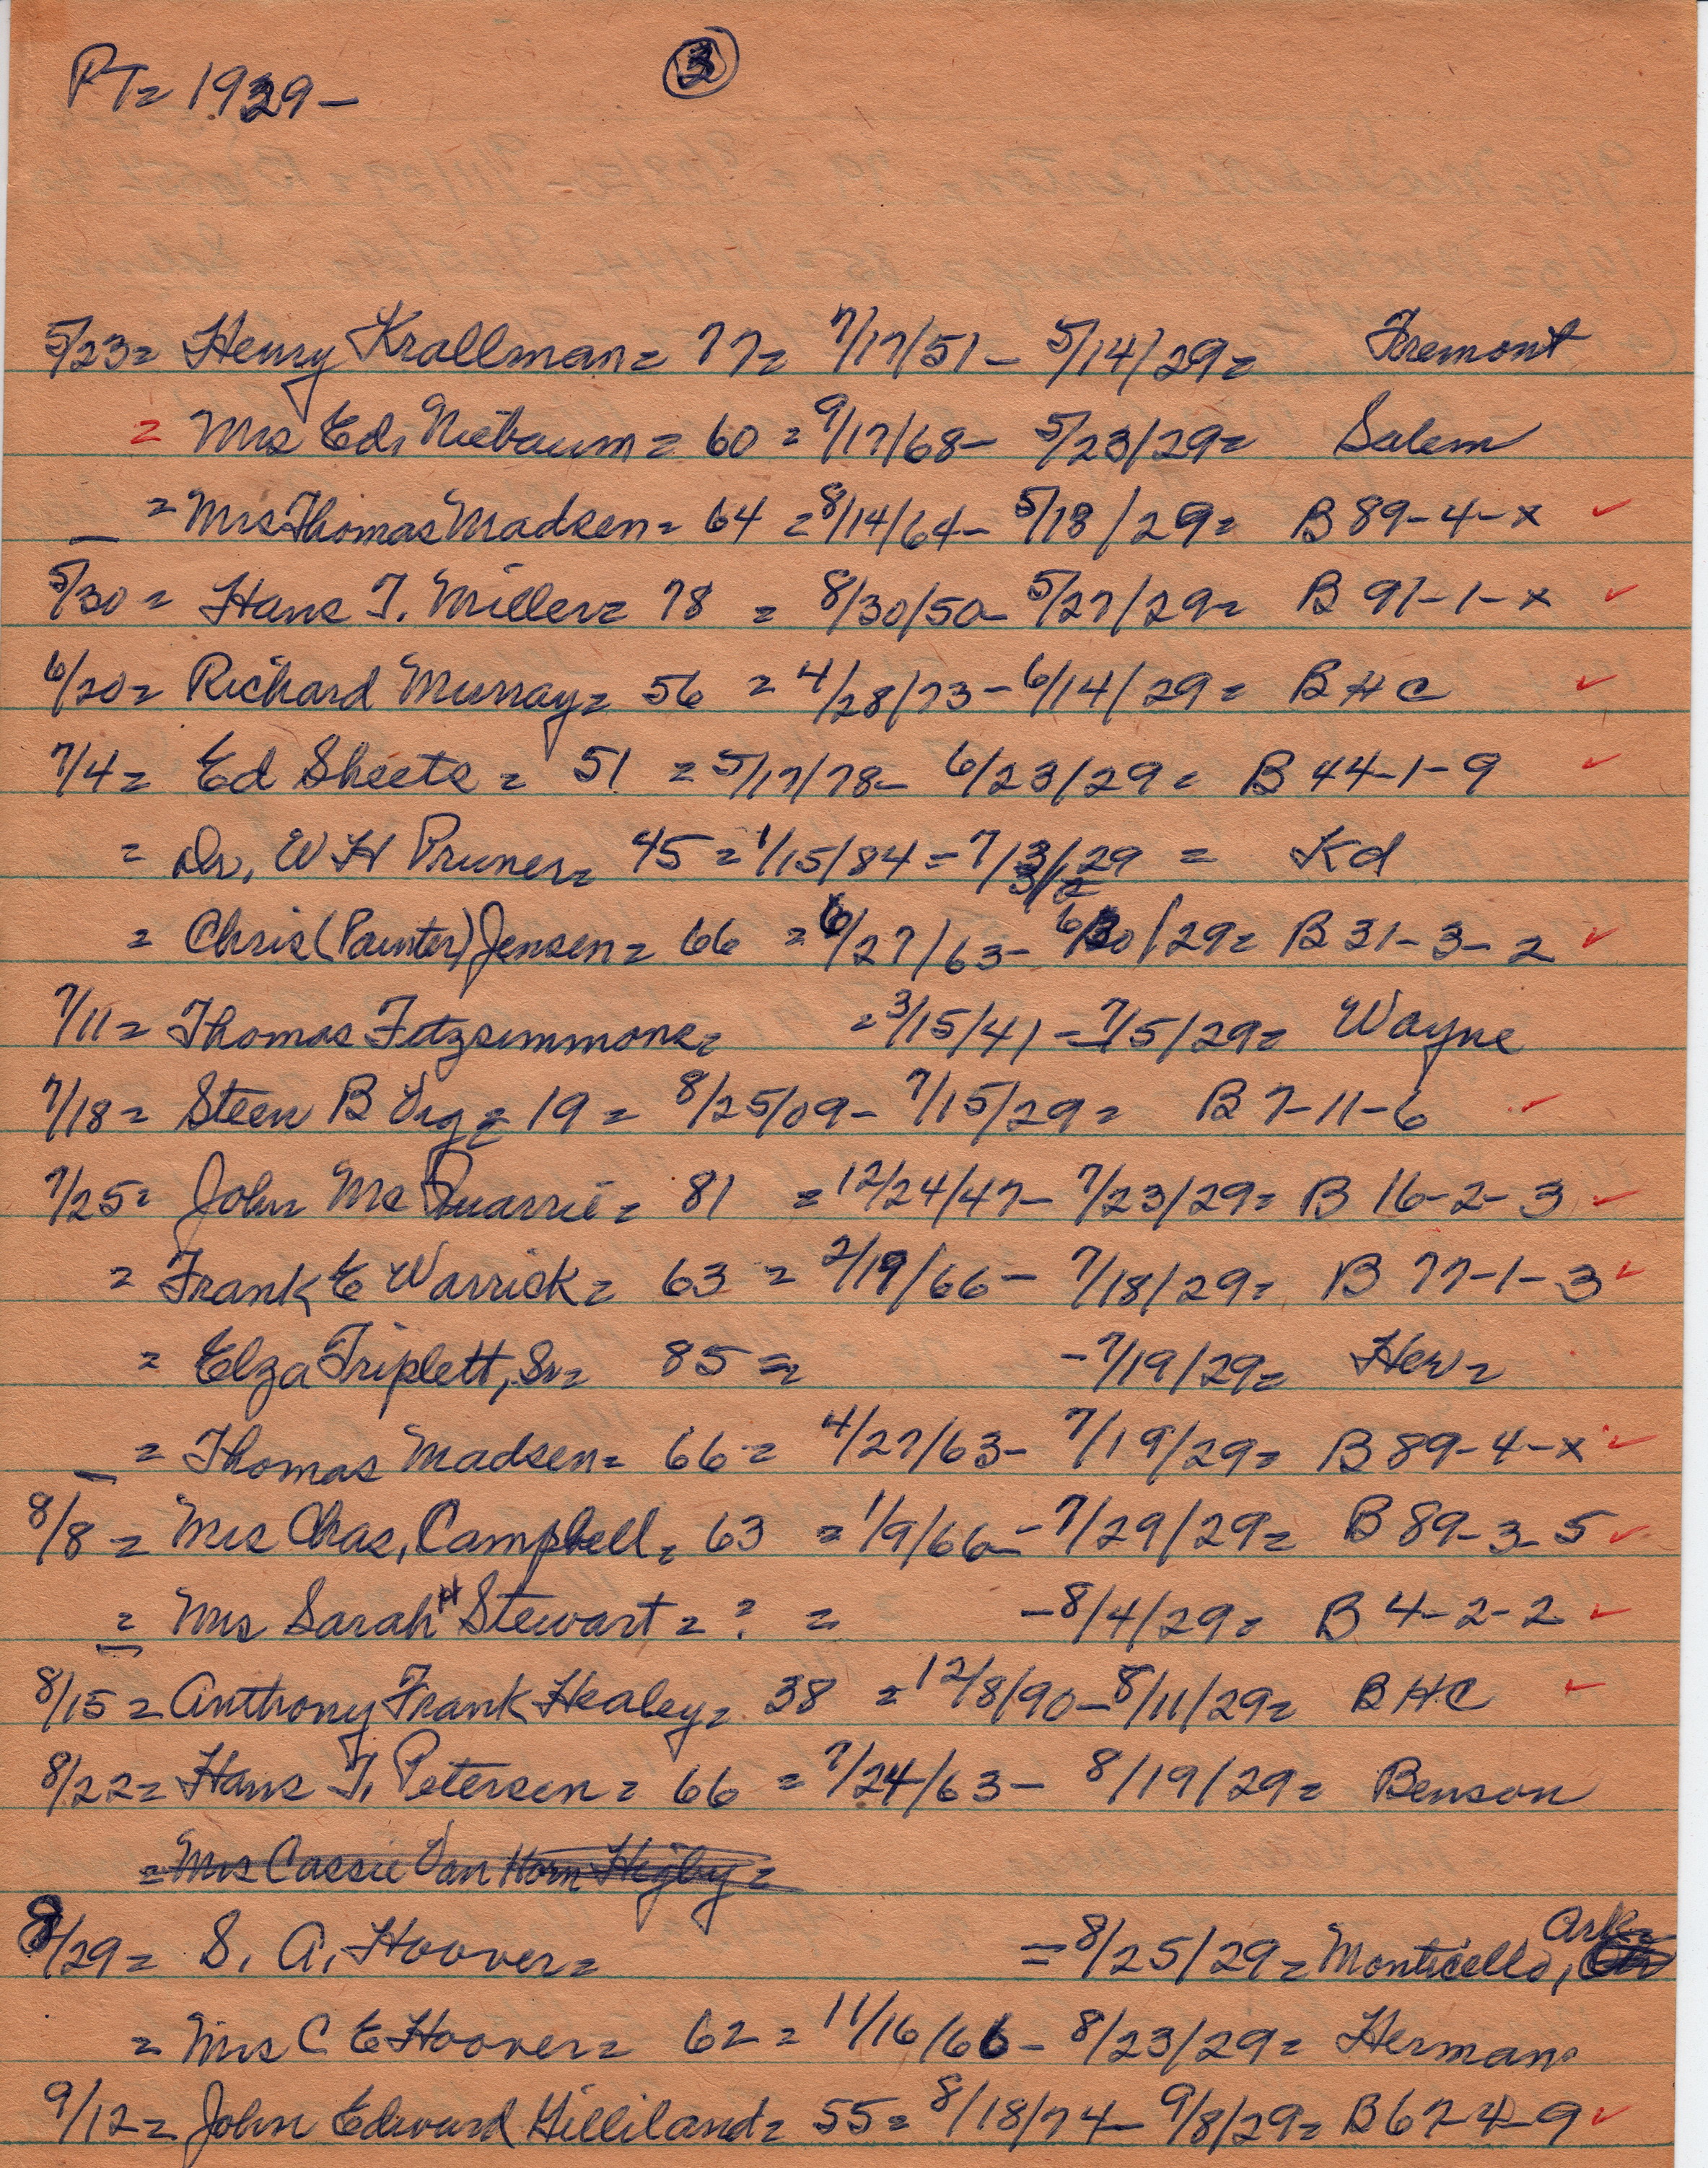 PT= 1929— ③
5/23= Henry Krallman= 77= 7/17/51— 5/14/29= Fremont
= Mrs Ed, Niebaum= 60 = 9/17/68— 5/23/29= Salem
= Mrs Thomas Madsen= 64 = 8/14/64— 5/18/29= B 89-4-x ✓
5/30= Hans T. Miller= 78 = 8/30/50— 5/27/29= B 91-1-x ✓
6/20= Richard Murray= 56 = 4/28/73— 6/14/29= B H C ✓
7/4= Ed Sheets= 51 = 5/17/78— 6/23/29= B 44-1-9 ✓
= Dr. W H Pruner= 45 = 1/15/84 = 7/3/29 = Kd
= Chris (Painter) Jensen= 66 = 6/27/63— 6/30/29= B 31-3-2 ✓
7/11= Thomas Fitzsimmons= = 3/15/41 — 7/5/29= Wayne
7/18= Steen B Vig= 19= 8/25/09— 7/15/29= B 7-11-6 ✓
7/25= John McQuarrie= 81 = 12/24/47— 7/23/29= B 16-2-3 ✓
= Frank E Warrick= 63 = 2/19/66— 7/18/29= B 77-1-3 ✓
= Elza Triplett, Sr= 85 = — 7/19/29= Her=
= Thomas Madsen= 66= 4/27/63— 7/19/29= B 89-4-x ✓
8/8= Mrs Chas, Campbell= 63 = 1/9/66— 7/29/29= B 89-3-5 ✓
= Mrs Sarah H Stewart= ? = — 8/4/29= B 4-2-2 ✓
8/15= Anthony Frank Healey= 38 = 12/8/90— 8/11/29= B H C ✓
8/22= Hans T, Petersen= 66 = 7/24/63— 8/19/29= Benson
= Mrs Cassie Van Horn Higby=
8/29= S. A. Hoover= = 8/25/29= Monticello, Ark=
= Mrs C E Hoover= 62= 11/16/66— 8/23/29= Herman
9/12= John Edward Gilliland= 55= 8/18/74— 9/8/29= B 67-4-9 ✓